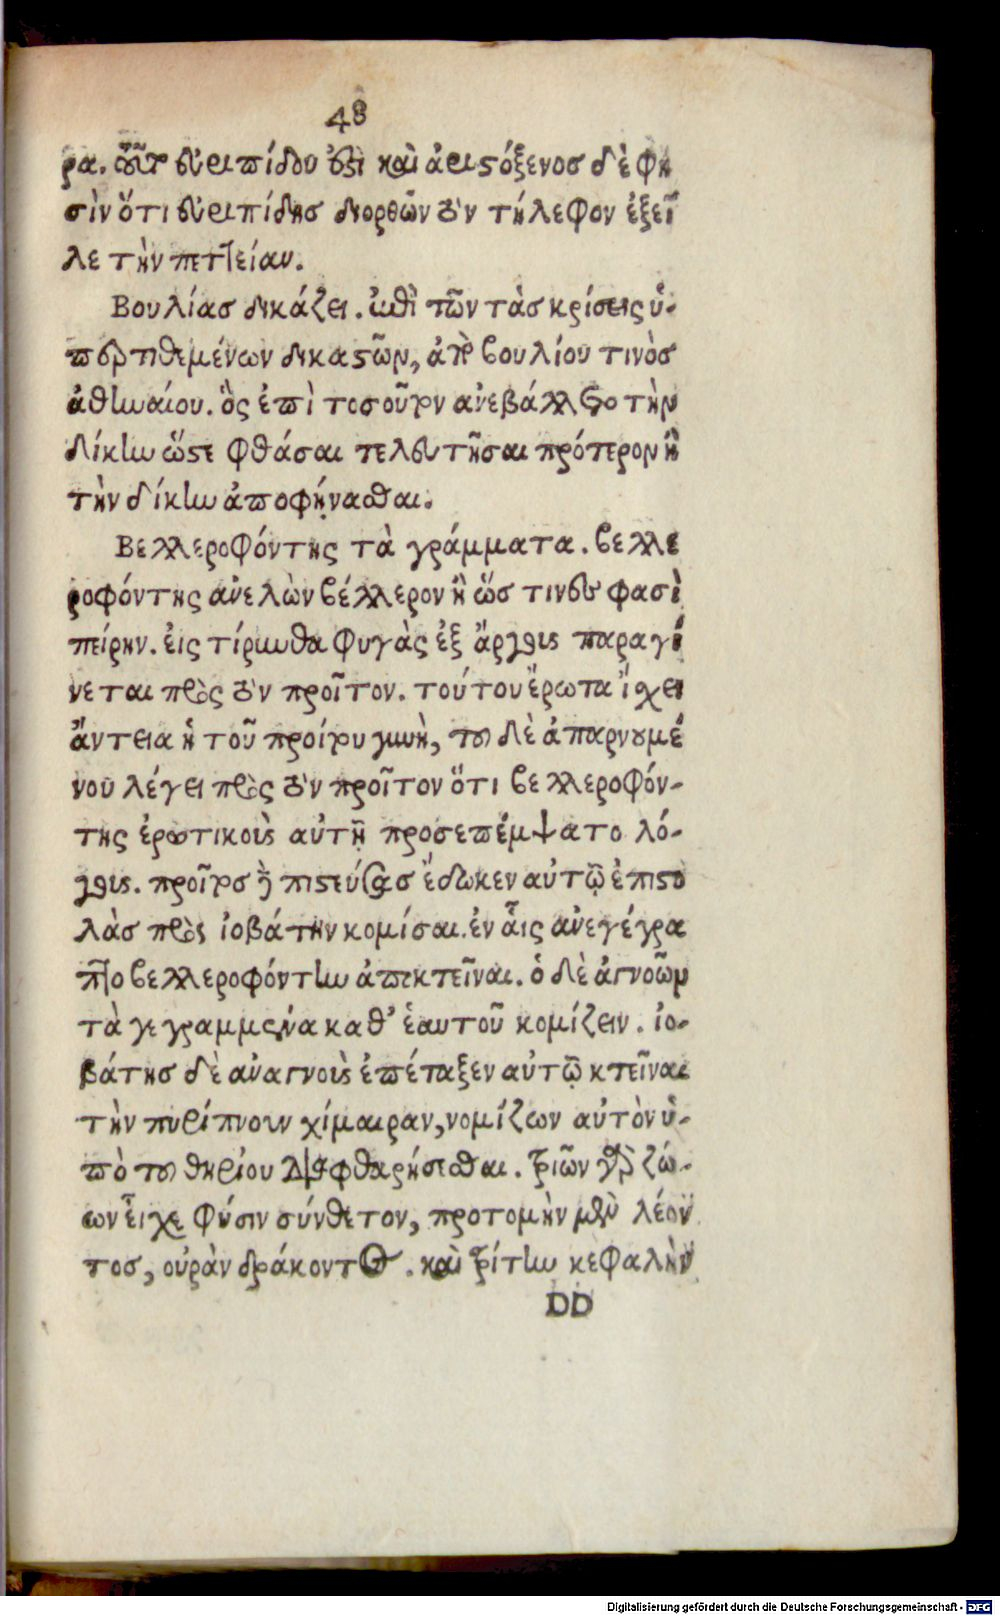 48
ρα. τοῦτο εὐριπίδου ἐστὶ καὶ ἀριστόξενοσ δὲ φη
σὶν ὅτι εὐριπίδησ διορθῶν τὸν τήλεφον ἐξεῖ
λε τὴν πεττείαν.
Βουλίασ δικάζει. ἐπὶ τῶν τὰσ κρίσεις ὑ-
περτιθεμένων δικαστῶν, ἀπὸ βουλίου τινὸσ
ἀθηναίου. ὃς ἐπὶ τοσοῦτον ἀνεβάλλετο τὴν
δίκην ὥστε φθάσαι τελευτῆσαι πρότερον ἢ
τὴν δίκην ἀποφήνασθαι.
Βελλεροφόντης τὰ γράμματα. βελλε
ροφόντης ἀνελὼν βέλλερον ἢ ὥσ τινες φασὶ
πείρην. εἰς τίρυνθα φυγὰς ἐξ ἄργους παραγί
νεται πρὸς τὸν προῖτον. τούτου ἔρωτα ἴσχει
ἄντεια ἡ τοῦ προίτου γυνὴ, του δὲ ἀπαρνουμέ
νου λέγει πρὸς τὸν προῖτον ὅτι βελλεροφόν-
της ἐρωτικοὺς αὐτῇ προσεπέμψατο λό-
γους. προῖτοσ δὲ πιστεύσασ ἔδωκεν αὐτῷ ἐπιστο
λὰσ πρὸς ἰοβάτην κομίσαι. ἐν αἷς ἀνεγέγρα
πτο βελλεροφόντην ἀποκτεῖναι. ὁ δὲ ἀγνοῶν
τὰ γεγραμμένα καθ' ἑαυτοῦ κομίζειν. ἰο-
βάτησ δὲ ἀναγνοὺς ἐπέταξεν αὐτῷ κτεῖναι
τὴν πυρίπνουν χίμαιραν, νομίζων αὐτὸν ὑ-
πὸ του θηρίου διαφθαρήσεσθαι. τριῶν γὰρ ζώ-
ων εἶχε φύσιν σύνθετον, προτομὴν μὲν λέον
τοσ, οὐρὰν δράκοντος. καὶ τρίτην κεφαλὴν
DD
Digitalisierung gefördert durch die Deutsche Forschungsgemeinschaft - DFG